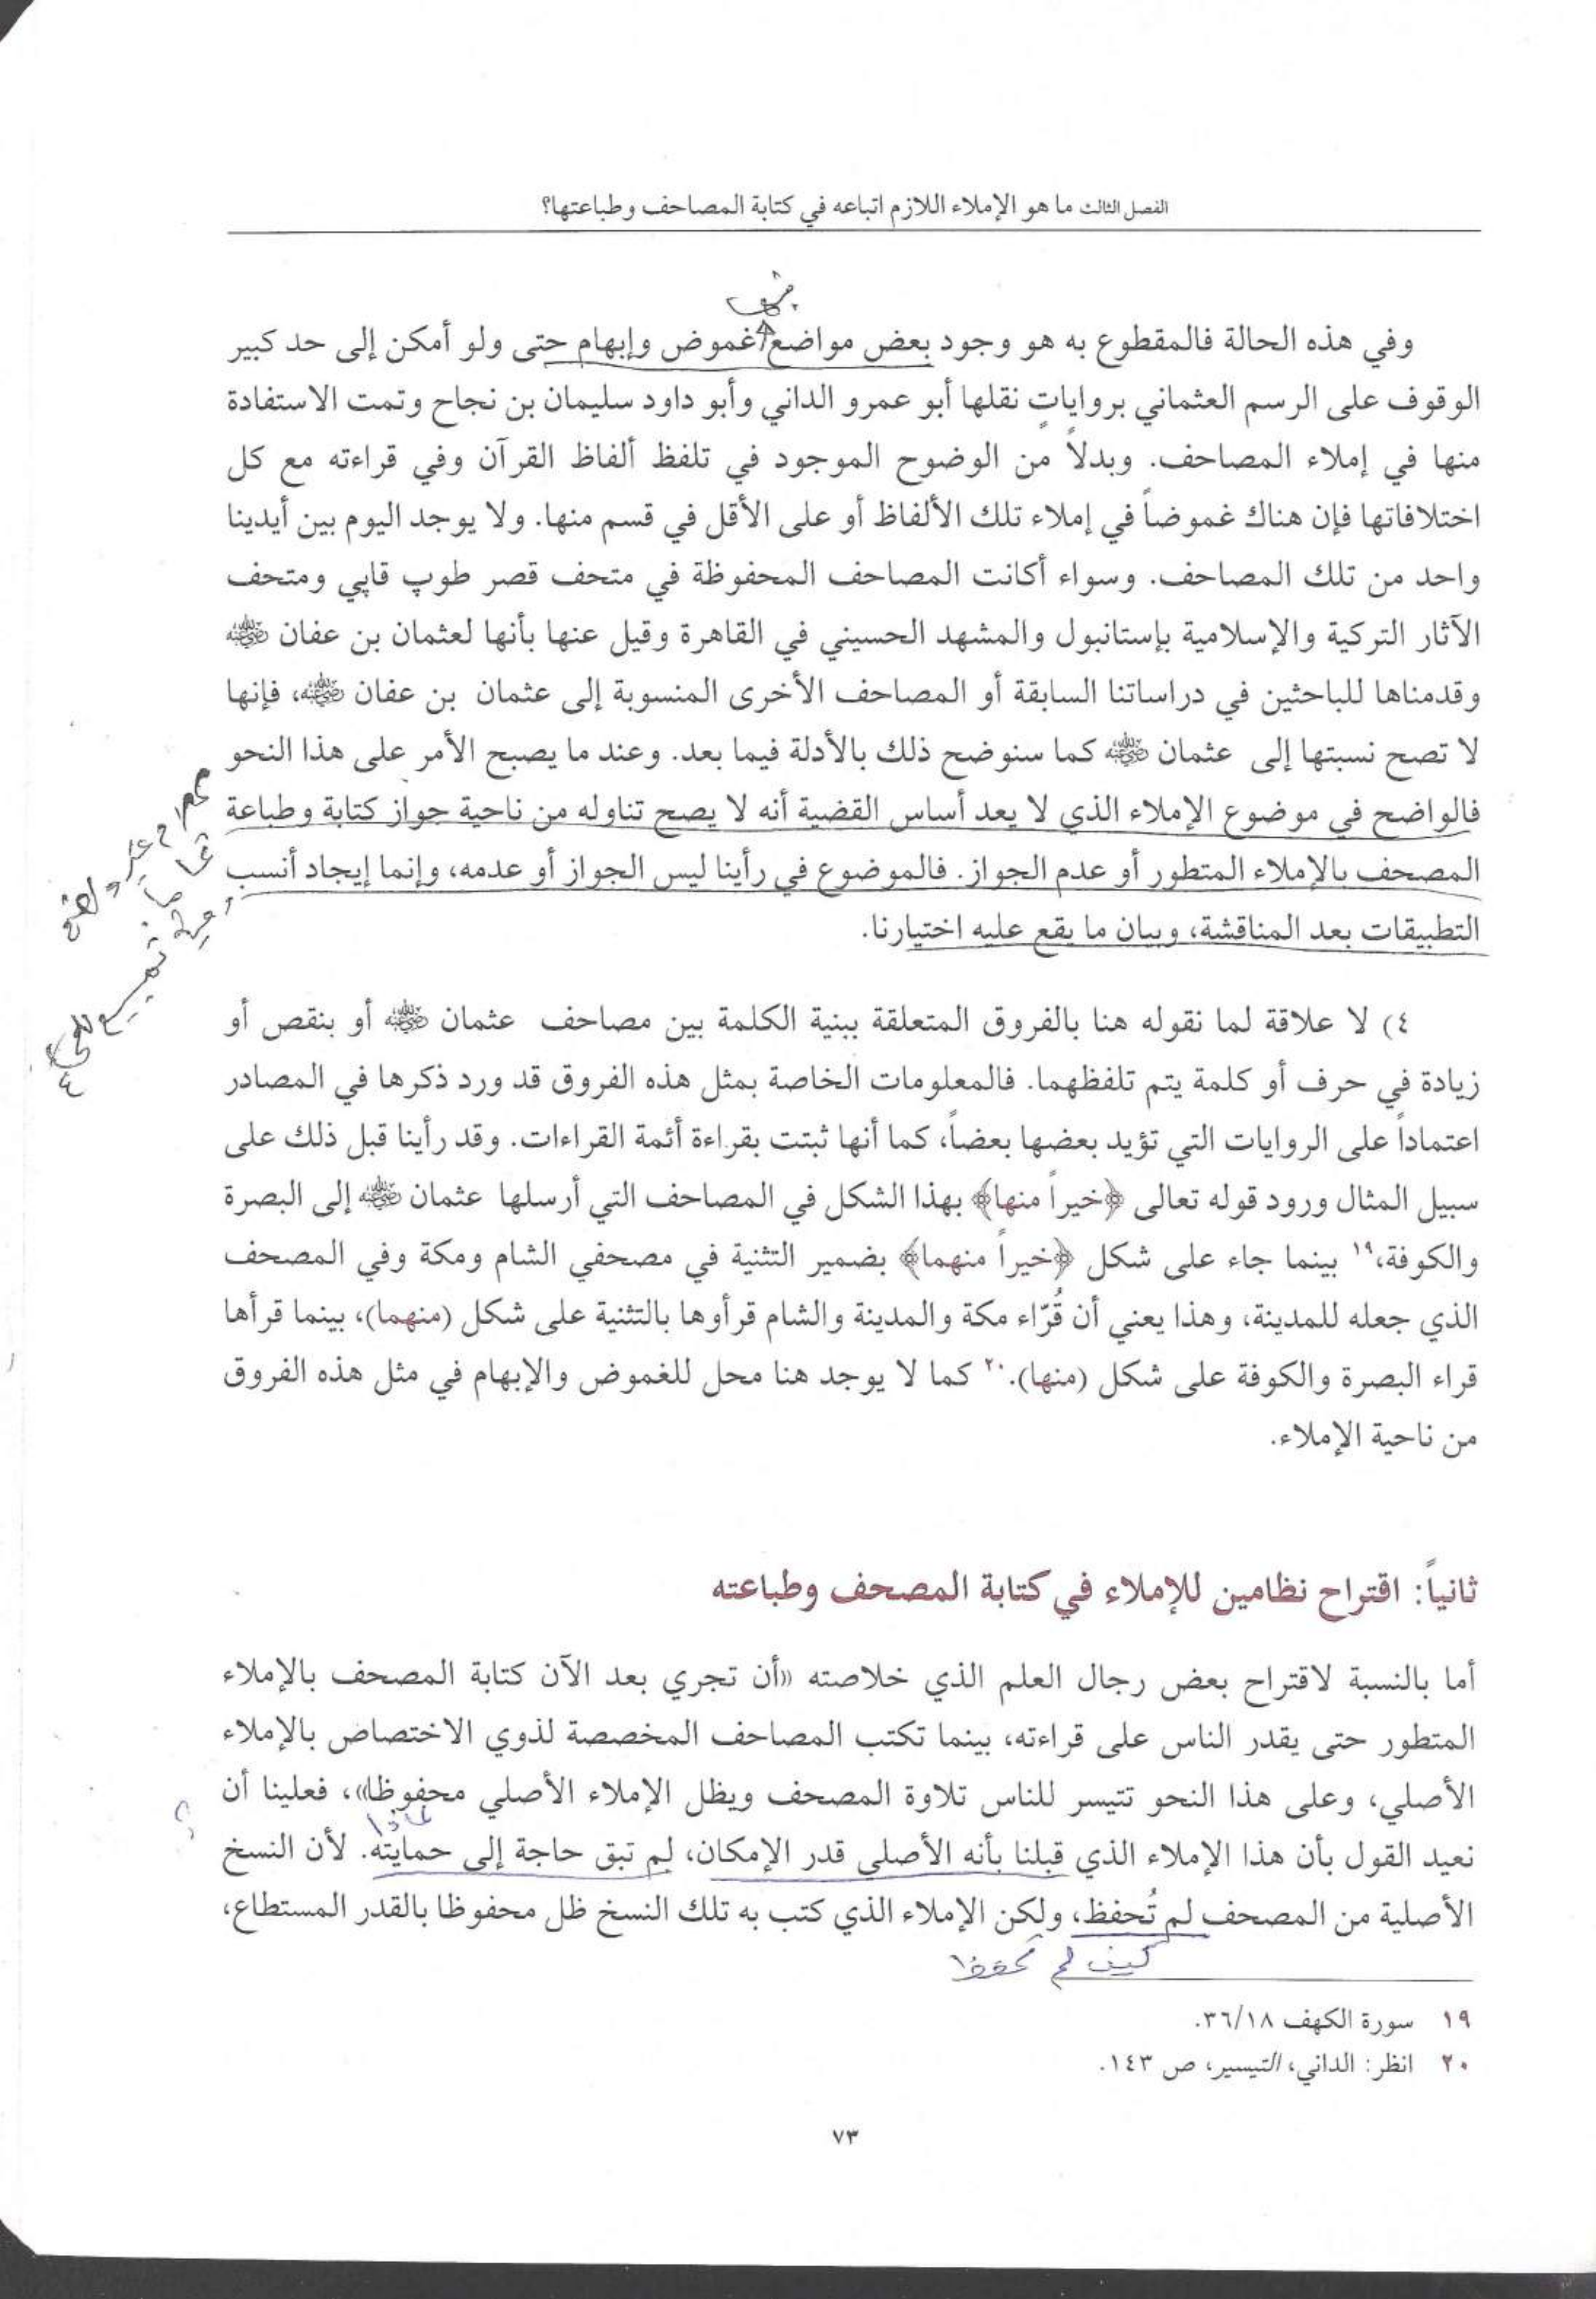 الفصل الثالث ما هو الإملاء اللازم اتباعه في كتابة المصاحف وطباعتها؟
وفي هذه الحالة فالمقطوع به هو وجود بعض مواضع غموض وإبهام حتى ولو أمكن إلى حد كبير
الوقوف على الرسم العثماني برواياتٍ نقلها أبو عمرو الداني وأبو داود سليمان بن نجاح وتمت الاستفادة
منها في إملاء المصاحف. وبدلاً من الوضوح الموجود في تلفظ ألفاظ القرآن وفي قراءته مع كل
اختلافاتها فإن هناك غموضاً في إملاء تلك الألفاظ أو على الأقل في قسم منها. ولا يوجد اليوم بين أيدينا
واحد من تلك المصاحف. وسواء أكانت المصاحف المحفوظة في متحف قصر طوپ قاپي ومتحف
الآثار التركية والإسلامية بإستانبول والمشهد الحسيني في القاهرة وقيل عنها بأنها لعثمان بن عفان ﷺ
وقدمناها للباحثين في دراساتنا السابقة أو المصاحف الأخرى المنسوبة إلى عثمان بن عفان رضي الله عنه، فإنها
لا تصح نسبتها إلى عثمان رضي الله عنه كما سنوضح ذلك بالأدلة فيما بعد. وعند ما يصبح الأمر على هذا النحو
فالواضح في موضوع الإملاء الذي لا يعد أساس القضية أنه لا يصح تناوله من ناحية جواز كتابة وطباعة
المصحف بالإملاء المتطور أو عدم الجواز. فالموضوع في رأينا ليس الجواز أو عدمه، وإنما إيجاد أنسب
التطبيقات بعد المناقشة، وبيان ما يقع عليه اختيارنا.
٤) لا علاقة لما نقوله هنا بالفروق المتعلقة ببنية الكلمة بين مصاحف عثمان رضي الله عنه أو بنقص أو
زيادة في حرف أو كلمة يتم تلفظهما. فالمعلومات الخاصة بمثل هذه الفروق قد ورد ذكرها في المصادر
اعتماداً على الروايات التي تؤيد بعضها بعضاً، كما أنها ثبتت بقراءة أئمة القراءات. وقد رأينا قبل ذلك على
سبيل المثال ورود قوله تعالى ﴿خيراً منها﴾ بهذا الشكل في المصاحف التي أرسلها عثمان رضي الله عنه إلى البصرة
والكوفة،١٩ بينما جاء على شكل ﴿خيراً منهما﴾ بضمير التثنية في مصحفي الشام ومكة وفي المصحف
الذي جعله للمدينة، وهذا يعني أن قُرّاء مكة والمدينة والشام قرأوها بالتثنية على شكل (منهما)، بينما قرأها
قراء البصرة والكوفة على شكل (منها).٢٠ كما لا يوجد هنا محل للغموض والإبهام في مثل هذه الفروق
من ناحية الإملاء.
ثانياً: اقتراح نظامين للإملاء في كتابة المصحف وطباعته
أما بالنسبة لاقتراح بعض رجال العلم الذي خلاصته «أن تجري بعد الآن كتابة المصحف بالإملاء
المتطور حتى يقدر الناس على قراءته، بينما تكتب المصاحف المخصصة لذوي الاختصاص بالإملاء
الأصلي، وعلى هذا النحو تتيسر للناس تلاوة المصحف ويظل الإملاء الأصلي محفوظا»، فعلينا أن
لماذا ؟
نعيد القول بأن هذا الإملاء الذي قبلنا بأنه الأصلي قدر الإمكان، لم تبق حاجة إلى حمايته. لأن النسخ
الأصلية من المصحف لم تُحفظ، ولكن الإملاء الذي كتب به تلك النسخ ظل محفوظا بالقدر المستطاع،
كيف لم تحفظ
١٩ سورة الكهف ٣٦/١٨.
٢٠ انظر: الداني، التيسير، ص ١٤٣.
٧٣